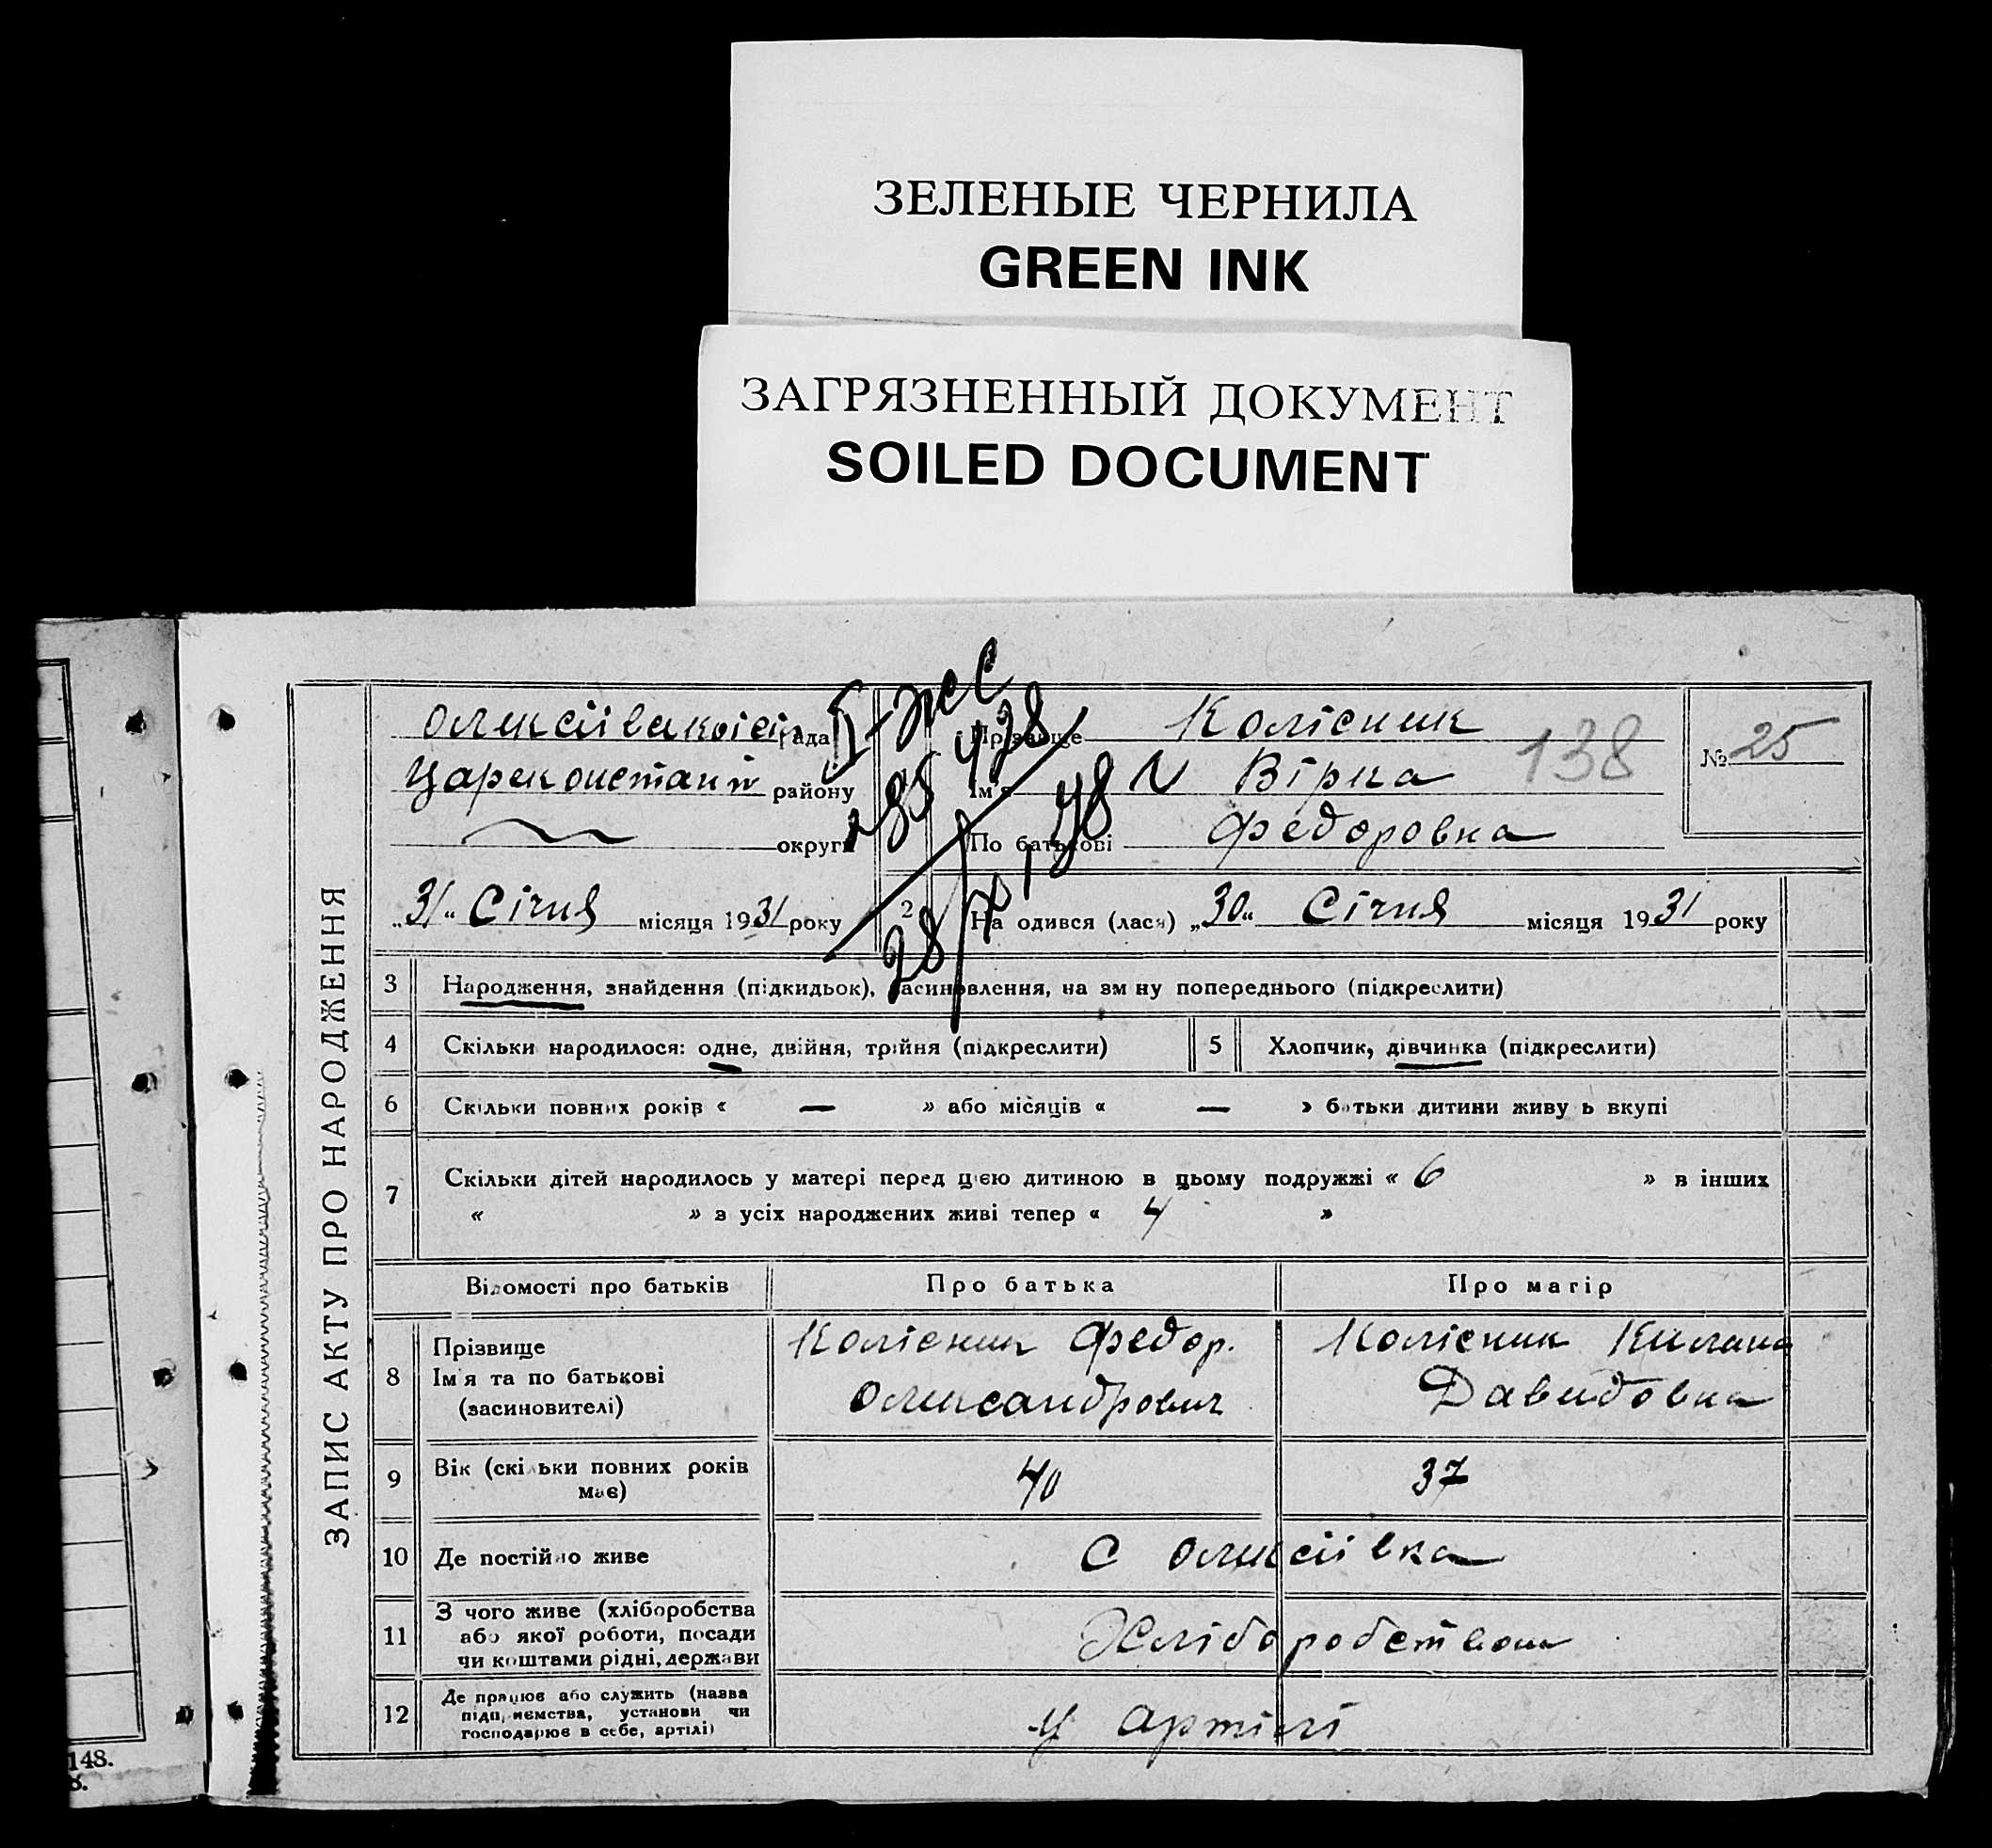 ЗЕЛЕНЫЕ ЧЕРНИЛА
GREEN INK
ЗАГРЯЗНЕННЫЙ ДОКУМЕНТ
SOILED DOCUMENT
ЗАПИС АКТУ ПРО НАРОДЖЕННЯ
рада
району
округи
"31" Січня місяця 1931 року
428
28/XI 48
Прізвище Колісник
Ім'я Вірка
138
По батькові Федоровна
№ 25
2 На одився (лася) "30" Січня місяця 1931 року
3 Народження, знайдення (підкидьок), засиновлення, на зм ну попереднього (підкреслити)
4 Скільки народилося: одне, двійня, трійня (підкреслити)
5 Хлопчик, дівчинка (підкреслити)
6 Скільки повних років « — » або місяців « — » батьки дитини живу ь вкупі
7 Скільки дітей народилось у матері перед цією дитиною в цьому подружжі « 6 » в інших
« » з усіх народжених живі тепер « 4 »
Відомості про батьків Про батька Про матір
8 Прізвище
Ім'я та по батькові
(засиновителі)
Колісник Федор.
Олександрович
Колісник Килина
Давидовна
9 Вік (скільки повних років
має)
40 37
10 Де постійно живе С Олексіївка
11 З чого живе (хліборобства
або якої роботи, посади
чи коштами рідні, держави
Хліборобством
12 Де працює або служить (назва
підприємства, установи чи
господарює в себе, артілі)
У артілі
148.
8.